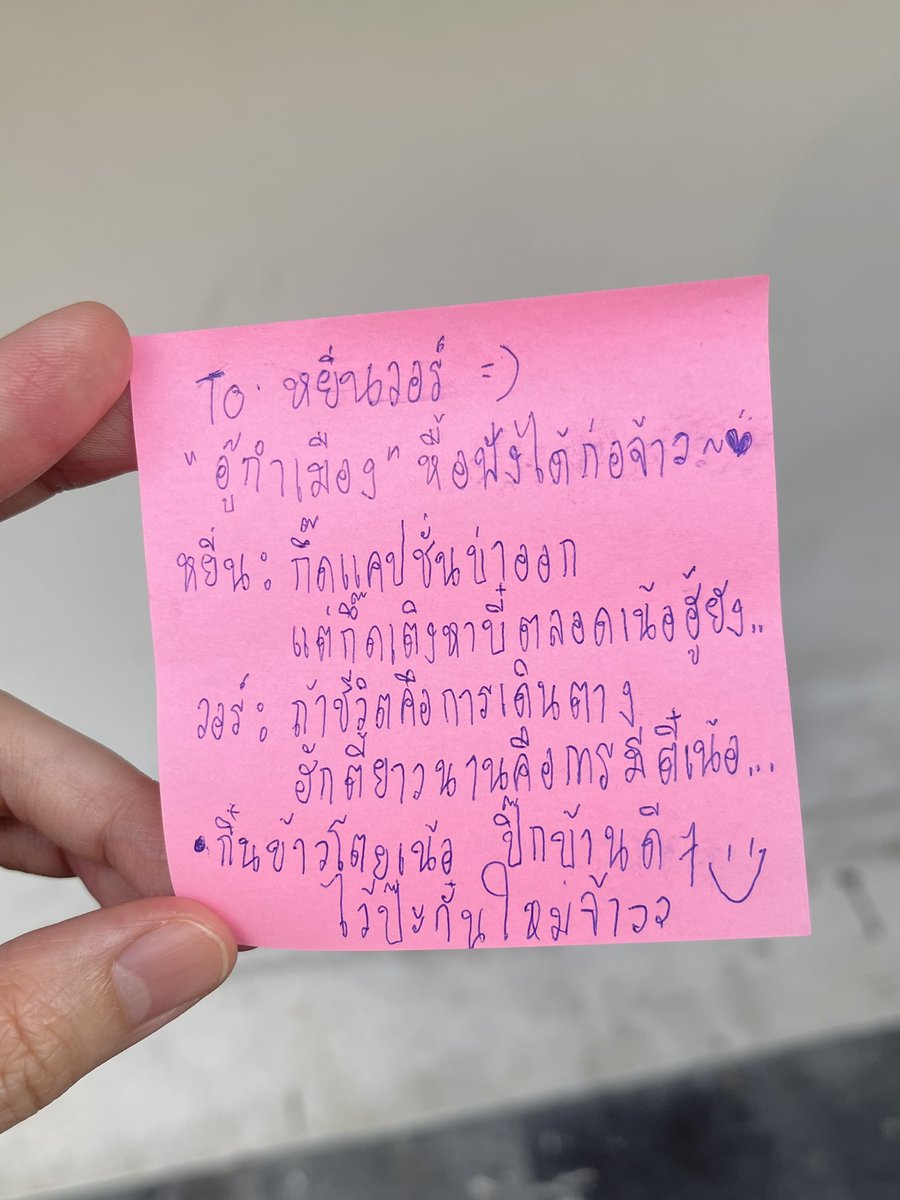 To. หยิ่นวอร์ =)
"อู้กำเมือง" หื้อฟังได้ก่อจ้าว~
หยิ่น: กึ๊ดแคปชั่นบ่าออก
แต่กึ๊ดเติงหาบี๋ตลอดเน้อฮู้ยัง..
วอร์: ถ้าชีวิตคือการเดินตาง
ฮักตี้ยาวนานคือการมีตี๋เน้อ...
• กิ๋นข้าวโตยเน้อ ปิ๊กบ้านดีๆ
ไว้ป๊ะกั๋นใหม่จ้าวว